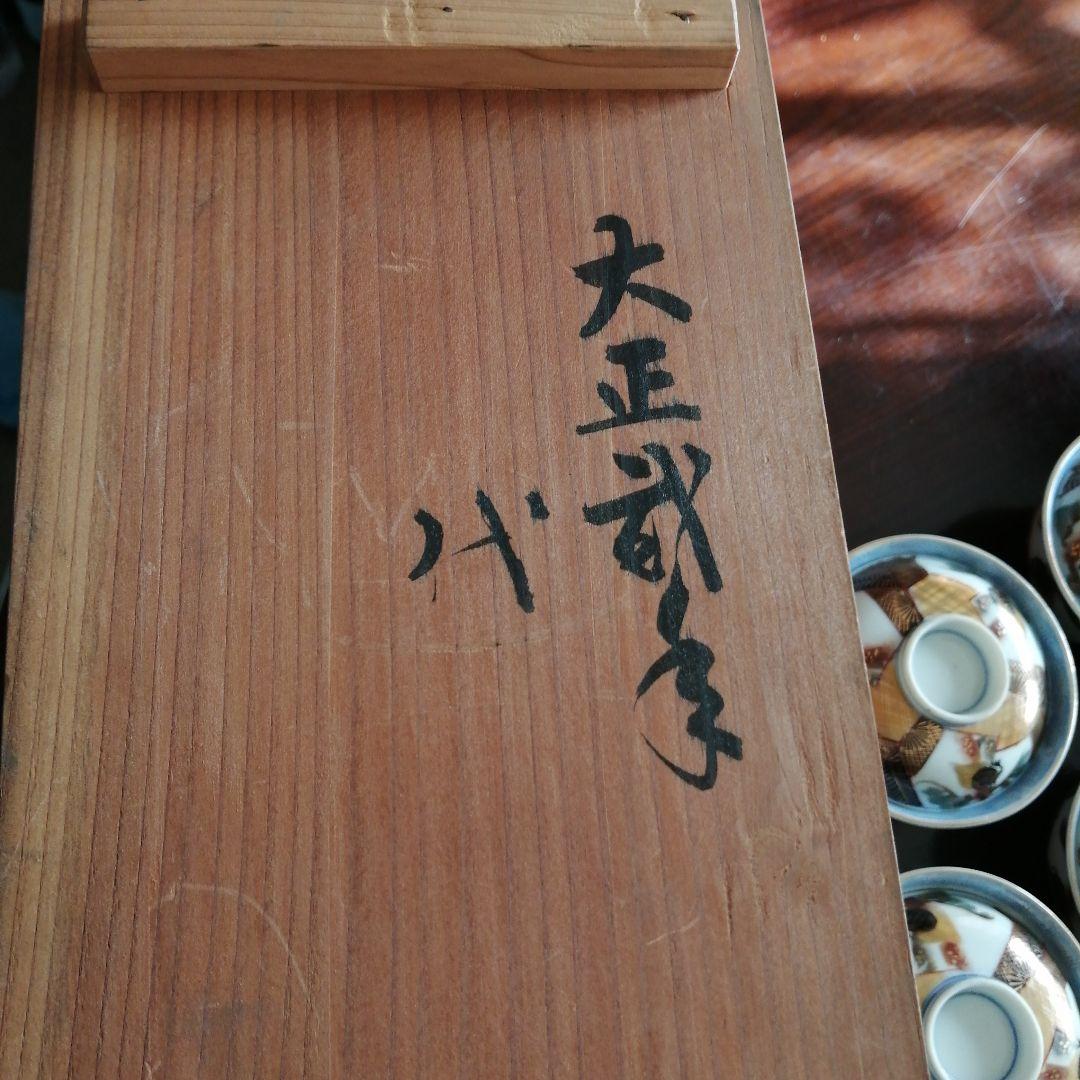 大正貳年
代